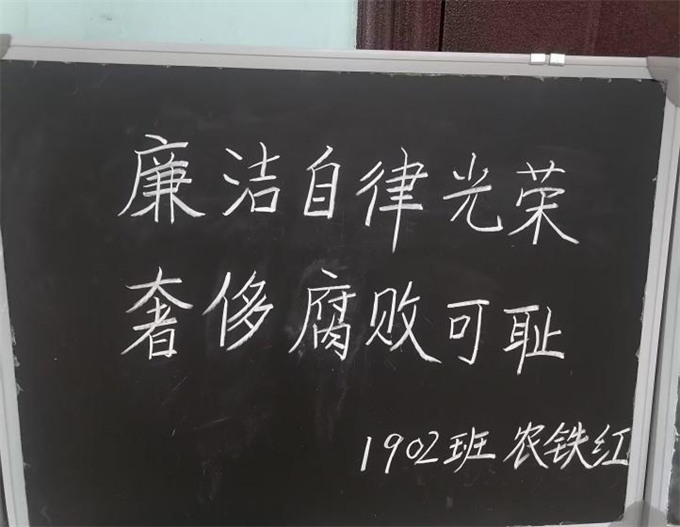 廉洁自律光荣
奢侈腐败可耻
1902班 农铁红